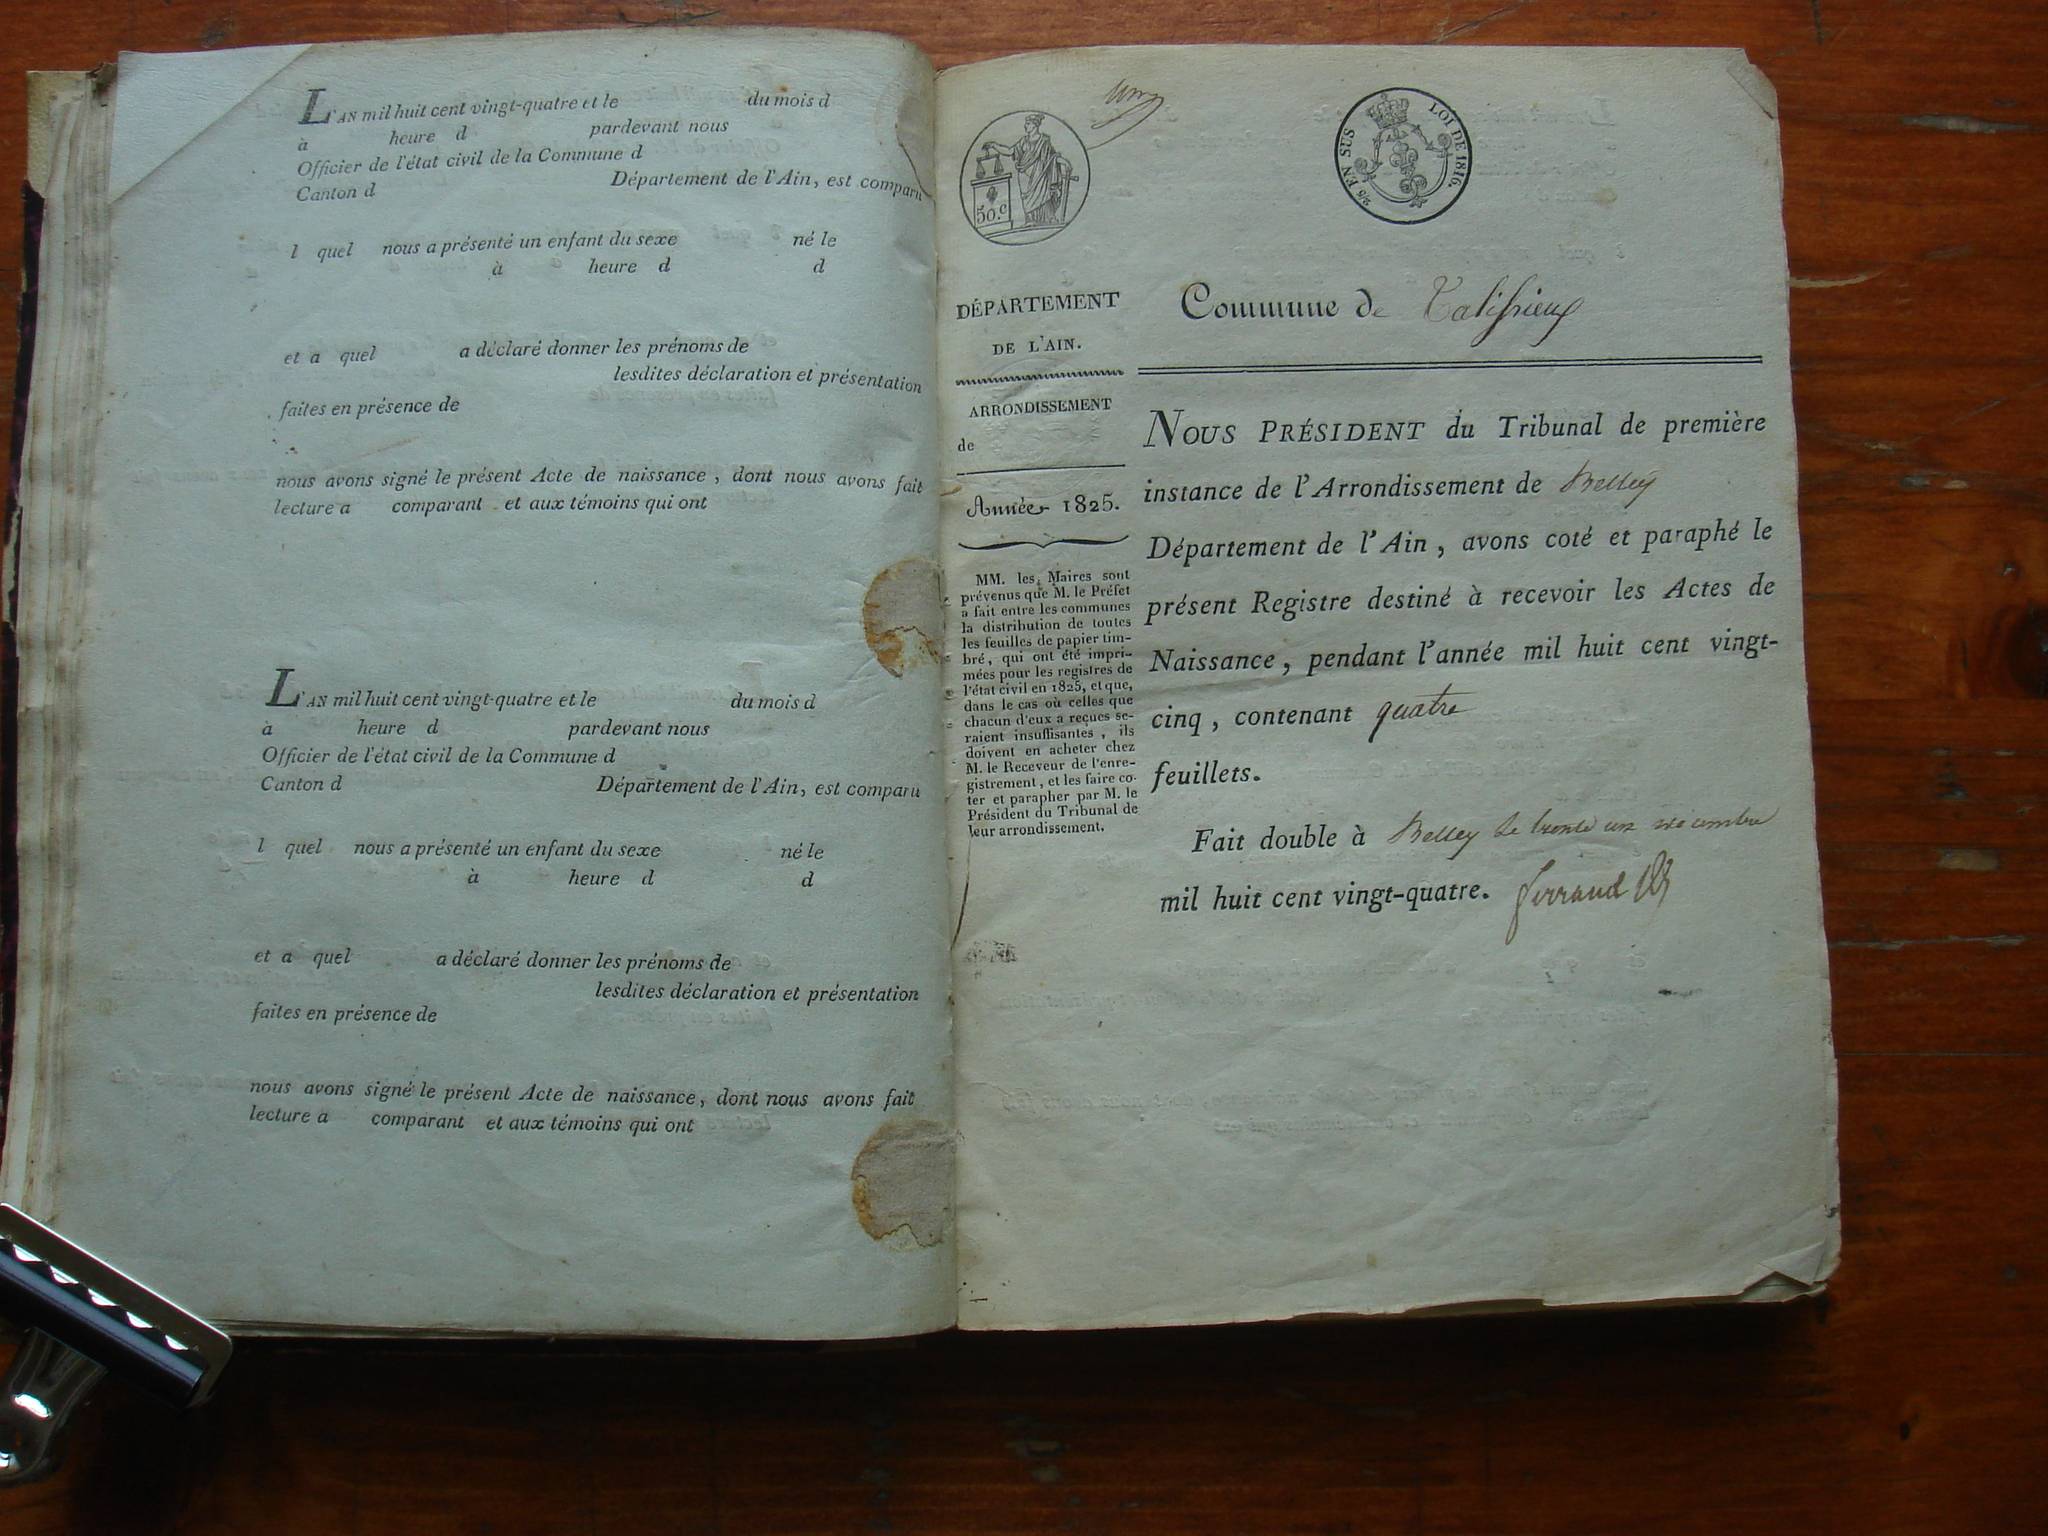 L'AN mil huit cent vingt-quatre et le du mois d
à heure d pardevant nous
Officier de l'état civil de la Commune d
Canton d Département de l'Ain, est comparu
l quel nous a présenté un enfant du sexe né le
à heure d d
et a quel a déclaré donner les prénoms de
lesdites déclaration et présentation
faites en présence de
nous avons signé le présent Acte de naissance, dont nous avons fait
lecture a comparant et aux témoins qui ont
L'AN mil huit cent vingt-quatre et le du mois d
à heure d pardevant nous
Officier de l'état civil de la Commune d
Canton d Département de l'Ain, est comparu
l quel nous a présenté un enfant du sexe né le
à heure d d
et a quel a déclaré donner les prénoms de
lesdites déclaration et présentation
faites en présence de
nous avons signé le présent Acte de naissance, dont nous avons fait
lecture a comparant et aux témoins qui ont
50.c
EN SUS
LOI DE 1816.
DÉPARTEMENT
DE L'AIN.
ARRONDISSEMENT
de
Année 1825.
MM. les Maires sont
prévenus que M. le Préfet
a fait entre les communes
la distribution de toutes
les feuilles de papier tim-
bré, qui ont été impri-
mées pour les registres de
l'état civil en 1825, et que,
dans le cas où celles que
chacun d'eux a reçues se-
raient insuffisantes, ils
doivent en acheter chez
M. le Receveur de l'enre-
gistrement, et les faire co-
ter et parapher par M. le
Président du Tribunal de
leur arrondissement.
Commune de Talissieux
NOUS PRÉSIDENT du Tribunal de première
instance de l'Arrondissement de Belley
Département de l'Ain, avons coté et paraphé le
présent Registre destiné à recevoir les Actes de
Naissance, pendant l'année mil huit cent vingt-
cinq, contenant quatre
feuillets.
Fait double à Belley le trente un décembre
mil huit cent vingt-quatre. Ferrand